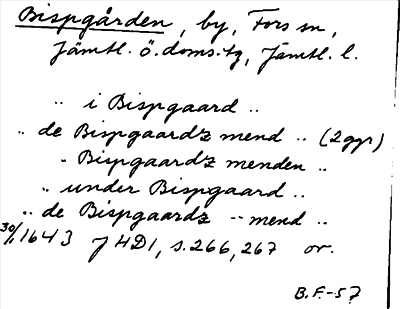 Bispgården, by, Fors sn,
Jämtl. ö. doms. tg, Jämtl. l.
.. i Bispgaard ..
.. de Bispgaardz mend .. (2 ggr)
.. Bispgaardz menden ..
.. under Bispgaard ..
.. de Bispgaardz -- mend ..
30/1 1643 JHD1, s. 266, 267 or.
B.F.-57